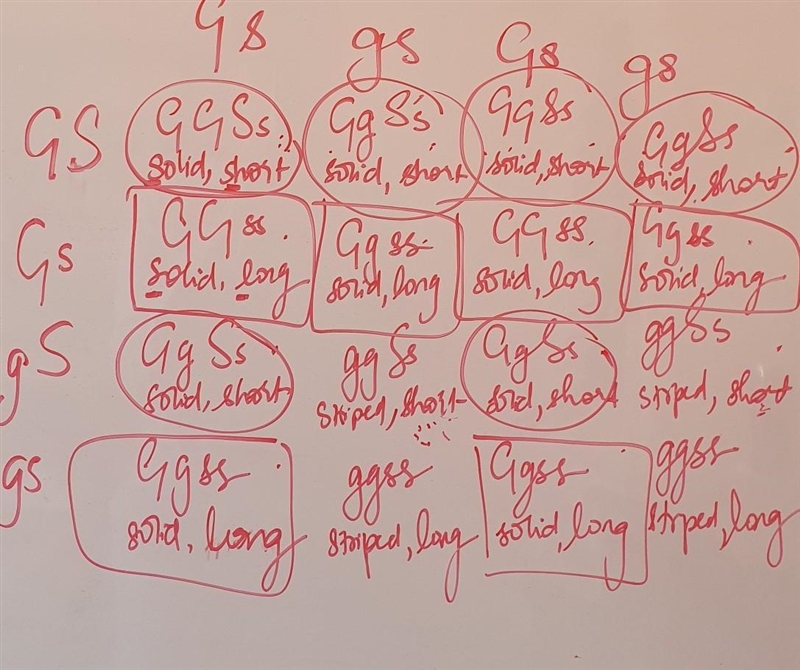 Gs gs Gs gs
GS GGSs GgSs GgSs GgSs
solid, short solid, short solid, short solid, short
Gs GGss Ggss GGss Ggss
solid, long solid, long solid, long solid, long
gS GgSs ggSs GgSs ggSs
solid, short striped, short solid, short striped, short
gs Ggss ggss Ggss ggss
solid, long striped, long solid, long striped, long